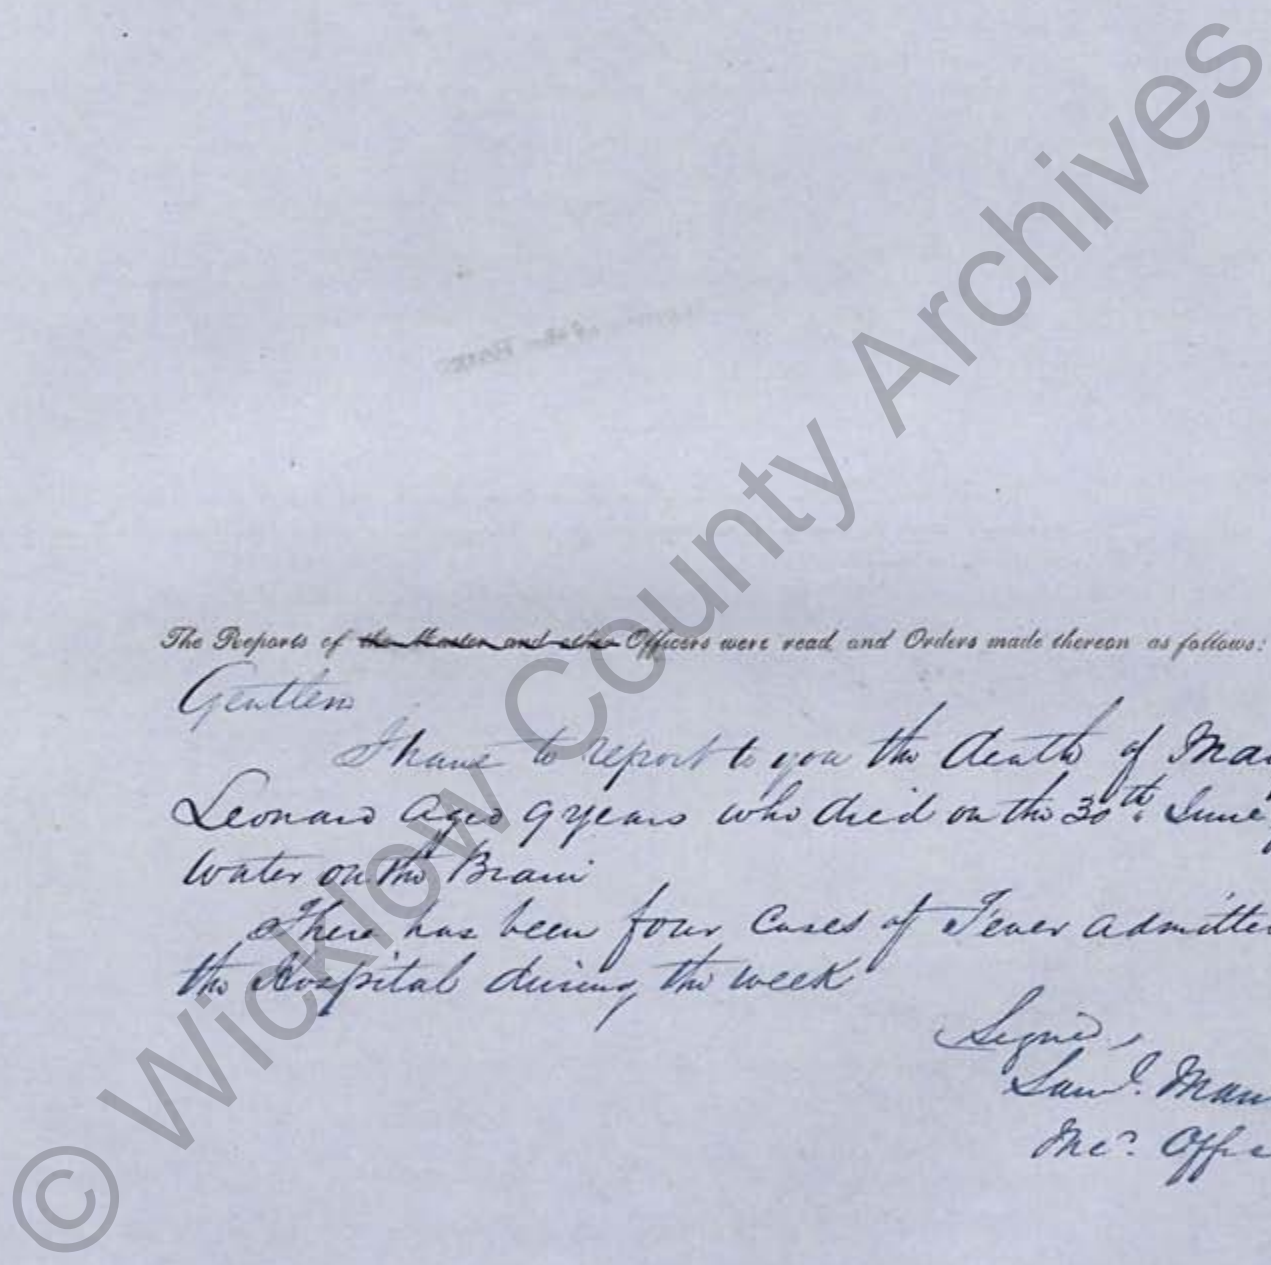 The Reports of the Master and other Officers were read and Orders made thereon as follows:
Gentlemn
I have to report to you the death of Mar
Leonard aged 9 years who died on the 30th. June
Water on the Brain
There has been four Cases of Fever admitte
the Hospital during the week
Signed,
Saml. Man
Med. Offic
© Wicklow County Archives